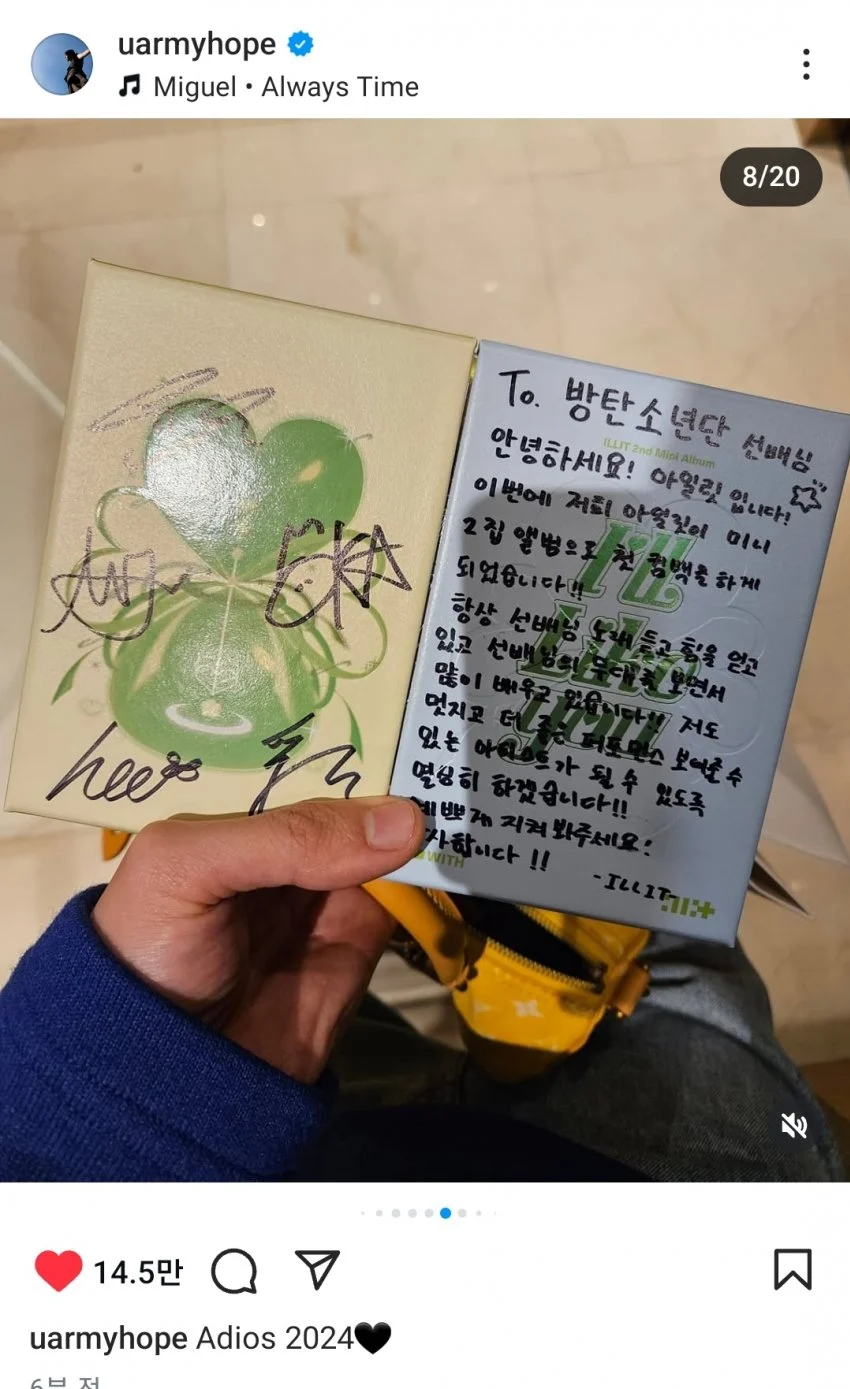 uarmyhope
Miguel • Always Time
8/20
To. 방탄소년단 선배님
ILLIT 2nd Mini Album
안녕하세요! 아일릿 입니다!
이번에 저희 아일릿이 미니
2집 앨범으로 첫 컴백을 하게
되었습니다!!
항상 선배님 노래 듣고 힘을 얻고
있고 선배님의 무대를 보면서
많이 배우고 있습니다!! 저도
멋지고 더 좋은 퍼포먼스 보여줄 수
있는 아이돌가 될 수 있도록
열심히 하겠습니다!!
예쁘게 지켜봐주세요!
사합니다!!
-ILLIT-
I'll
Like
you
WITH
EKA
14.5만
uarmyhope Adios 2024🖤
6분 전